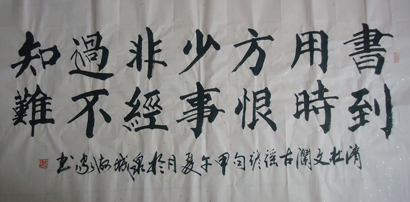 書到
用時
方恨
少事
非經
過不
知難
清杜文瀾古謠諺句甲午夏月於泉城書